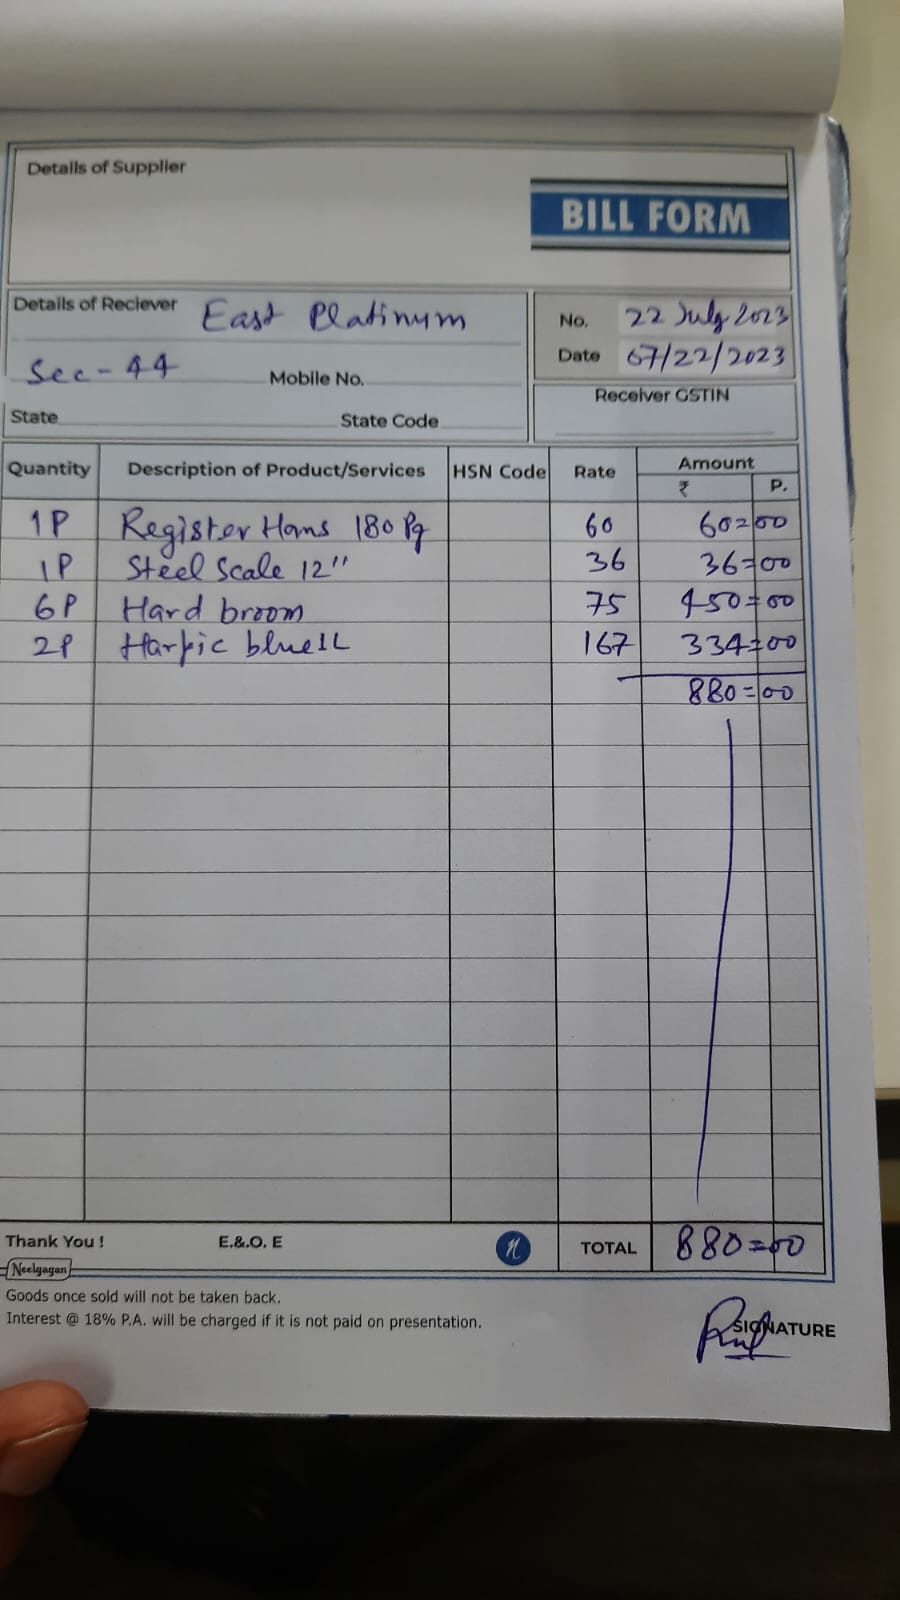 Details of Supplier
BILL FORM
Details of Reciever East Platinum
Sec-44
Mobile No.
State
State Code
No. 22 July 2023
Date 07/22/2023
Receiver GSTIN
Quantity Description of Product/Services HSN Code Rate Amount
₹ P.
1P Register Hans 180 Pg 60 60=00
1P Steel Scale 12" 36 36=00
6P Hard broom 75 450=00
2P Harpic blue 1L 167 334=00
880=00
Thank You ! E.&.O. E n TOTAL 880=00
Neelgagan
Goods once sold will not be taken back.
Interest @ 18% P.A. will be charged if it is not paid on presentation.
SIGNATURE